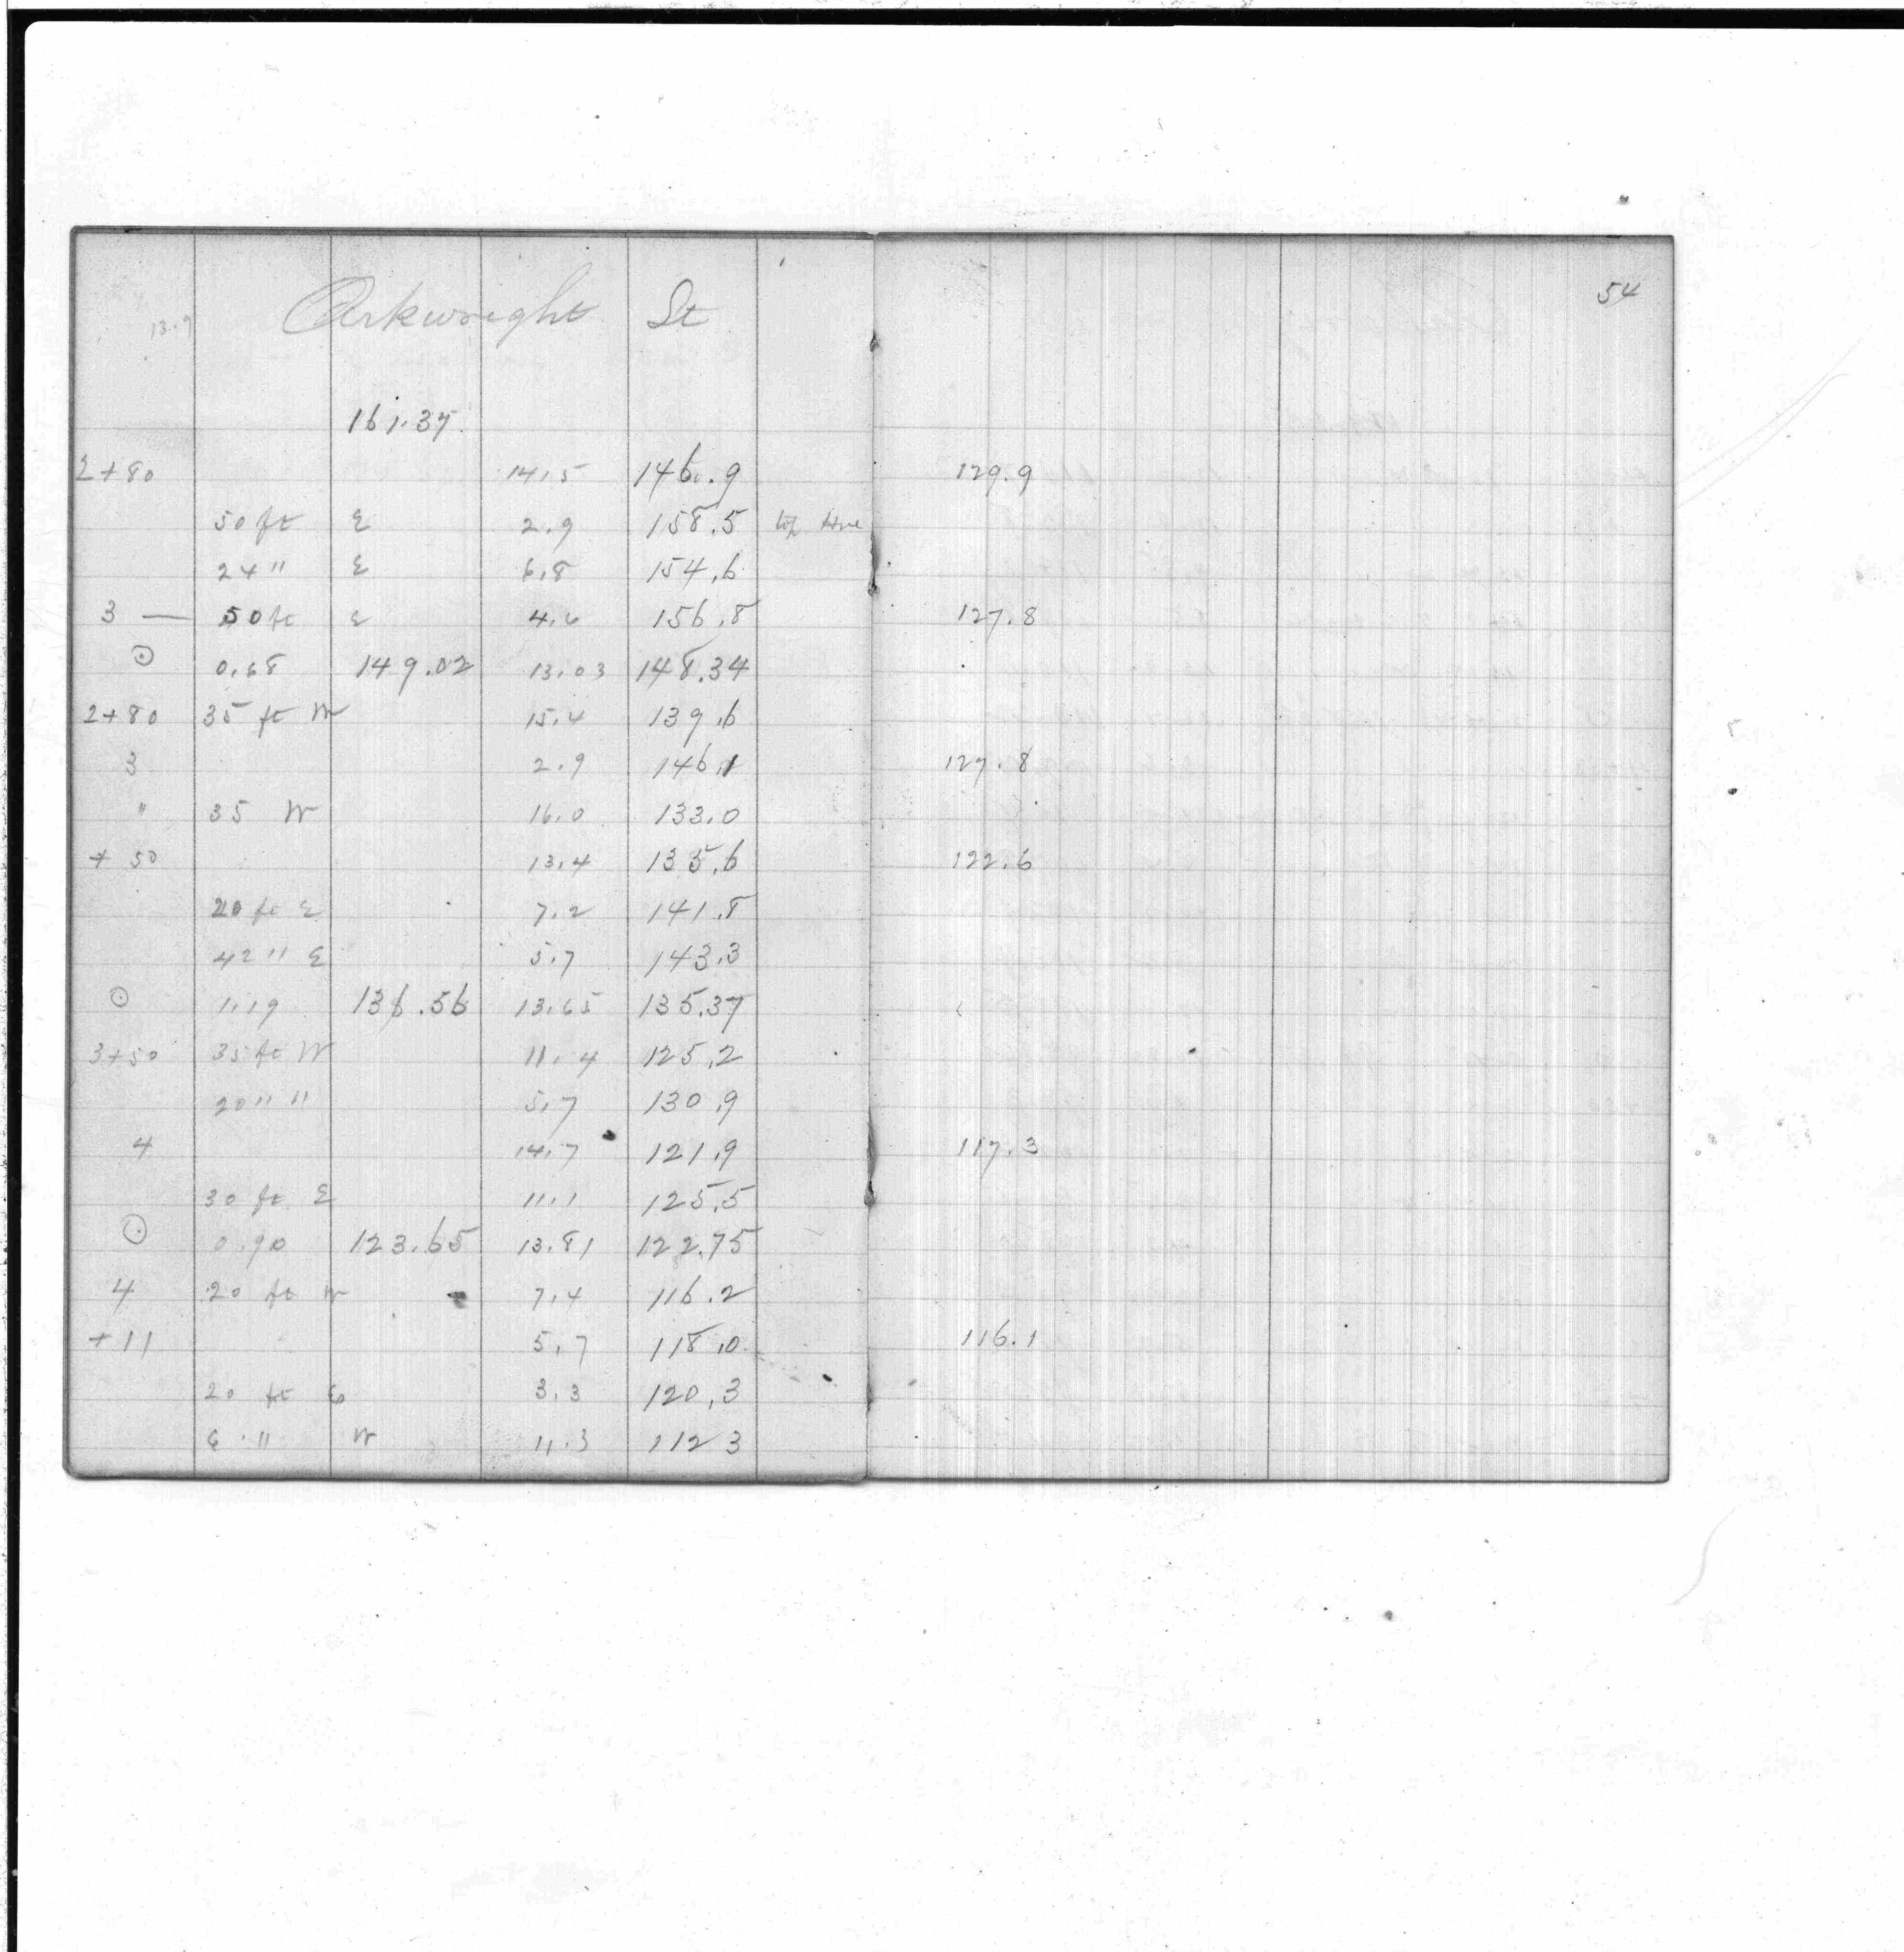 Arkwright St
13.9
54
161.37
2+80 14.5 146.9 129.9
50 ft E 2.9 158.5 top
24 " E 6.8 154.6
3 — 50 ft E 4.6 156.8 127.8
⊙ 0.68 149.02 13.03 148.34
2+80 35 ft W 139.6
3 2.9 146.1 127.8
" 35 W 16.0 133.0
+ 50 13.4 135.6 122.6
20 ft E 7.2 141.8
42 " E 5.7 143.3
⊙ 1.19 136.56 13.65 135.37
3+50 35 ft W 11.4 125.2
20 " " 5.7 130.9
4 14.7 121.9 117.3
30 ft E 11.1 125.5
⊙ 0.90 123.65 13.81 122.75
4 20 ft W 7.4 116.2
+11 5.7 118.0 116.1
20 ft E 3.3 120.3
6 " W 11.3 112 3